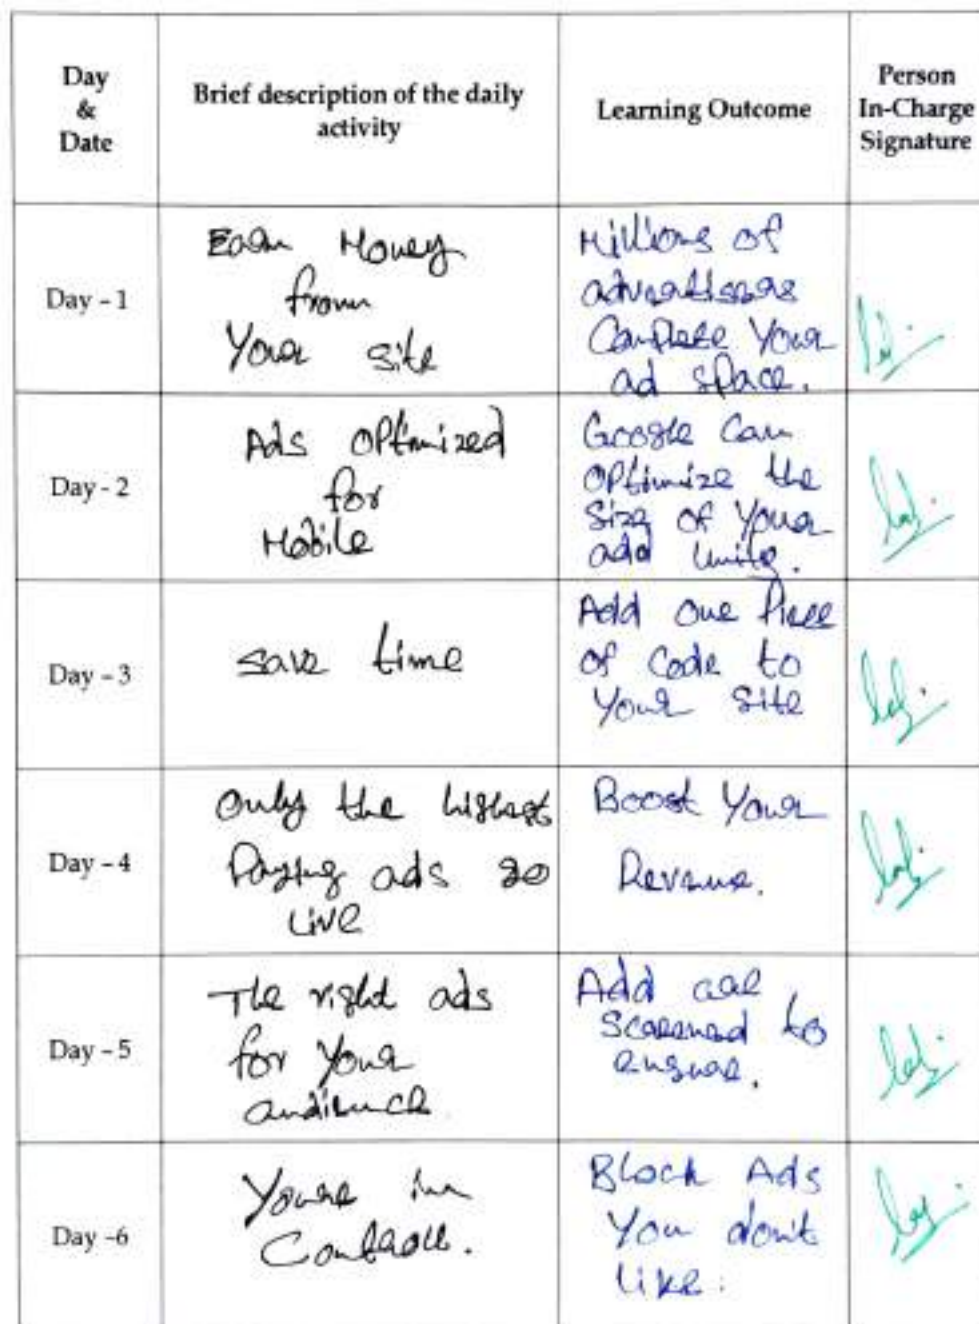 Day
&
Date
Brief description of the daily
activity
Learning Outcome
Person
In-Charge
Signature
Day - 1
Earn Money
from
Your site
Millions of
advertisers
Complete Your
ad space.
Day - 2
Ads Optimized
for
Mobile
Google Can
Optimize the
Size of Your
add Units.
Day - 3
save time
Add one Piece
of Code to
Your Site
Day - 4
Only the highest
Paying ads go
Live
Boost Your
Revenue.
Day - 5
The right ads
for Your
audience
Add are
Screened to
ensure.
Day -6
Youre in
Controll.
Block Ads
You don't
Like.